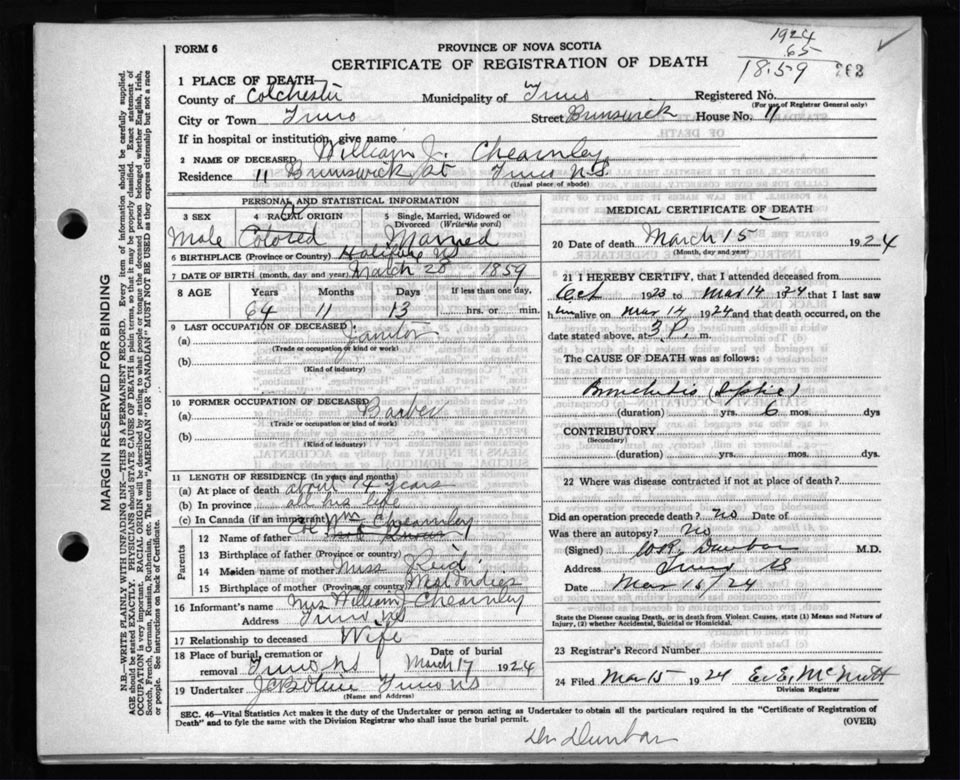 1924
65
18.59
FORM 6
PROVINCE OF NOVA SCOTIA
CERTIFICATE OF REGISTRATION OF DEATH
262
1 PLACE OF DEATH
County of Colchester Municipality of Truro Registered No.
(For use of Registrar General only)
City or Town Truro Street Brunswick House No. 11
If in hospital or institution, give name
2 NAME OF DECEASED William J. Chearnley
Residence 11 Brunswick St Truro N.S.
(Usual place of abode)
PERSONAL AND STATISTICAL INFORMATION
3 SEX 4 RACIAL ORIGIN 5 Single, Married, Widowed or Divorced (Write the word)
Male Colored Married
6 BIRTHPLACE (Province or Country) Halifax NS
7 DATE OF BIRTH (month, day and year) March 28 1859
8 AGE Years Months Days If less than one day,
64 11 13 hrs. or min.
9 LAST OCCUPATION OF DECEASED
(a) Janitor
(Trade or occupation or kind of work)
(b)
(Kind of industry)
10 FORMER OCCUPATION OF DECEASED
(a) Barber
(Trade or occupation or kind of work)
(b)
(Kind of industry)
11 LENGTH OF RESIDENCE (In years and months)
(a) At place of death about 14 years
(b) In province all his life
(c) In Canada (if an immigrant)
Parents
12 Name of father Col Wm Chearnley
13 Birthplace of father (Province or country)
14 Maiden name of mother Miss Reid
15 Birthplace of mother (Province or country) West Indies
16 Informant's name Mrs William Chearnley
Address Truro NS
17 Relationship to deceased Wife
18 Place of burial, cremation or removal Truro NS Date of burial March 17 1924
19 Undertaker Truro NS
(Name and Address)
MEDICAL CERTIFICATE OF DEATH
20 Date of death March 15 1924
(Month, day and year)
21 I HEREBY CERTIFY, that I attended deceased from
Oct 1923 to Mar 14 1924 that I last saw
him alive on Mar 14 1924 and that death occurred, on the
date stated above, at 3 P. m.
The CAUSE OF DEATH was as follows:
Bronchitis (Septic)
(duration) yrs. 6 mos. dys
CONTRIBUTORY
(Secondary)
(duration) yrs. mos. dys.
22 Where was disease contracted if not at place of death?
Did an operation precede death? no Date of
Was there an autopsy? No
(Signed) Dunbar M.D.
Address Truro NS
Date Mar 16/24
State the Disease causing Death, or in death from Violent Causes, state (1) Means and Nature of Injury, (2) whether Accidental, Suicidal or Homicidal.
23 Registrar's Record Number
24 Filed Mar 15 1924 E. E. McNutt
Division Registrar
SEC. 46—Vital Statistics Act makes it the duty of the Undertaker or person acting as Undertaker to obtain all the particulars required in the "Certificate of Registration of
Death" and to fyle the same with the Division Registrar who shall issue the burial permit. (OVER)
Dr Dunbar
MARGIN RESERVED FOR BINDING
N.B.—WRITE PLAINLY WITH UNFADING INK—THIS IS A PERMANENT RECORD. Every item of information should be carefully supplied.
AGE should be stated EXACTLY. PHYSICIANS should STATE CAUSE OF DEATH in plain terms, so that it may be properly classified. Exact statement of
OCCUPATION is very important. RACIAL ORIGIN will be described by stating to what people or tongue the deceased person belonged whether English, Irish,
Scotch, French, German, Russian, Ruthenian, etc. The terms "AMERICAN" OR "CANADIAN" MUST NOT BE USED as they express citizenship but not a race
or people. See instructions on back of Certificate.